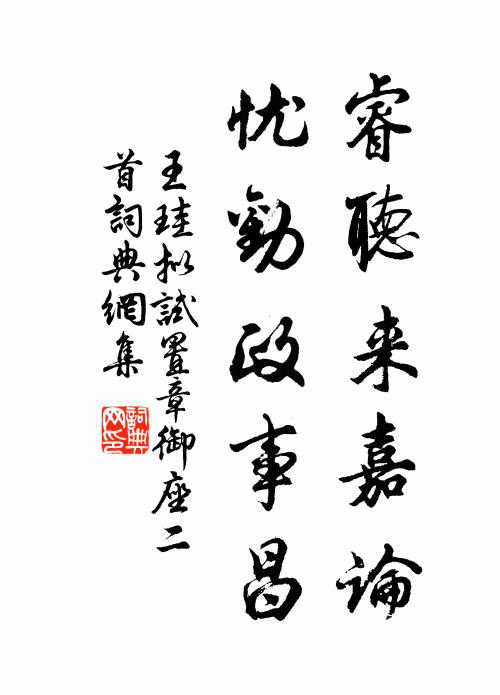 睿聽来嘉論
忧勤政事昌
王珪拟試置章御座二
首詞典網集
詞典网印